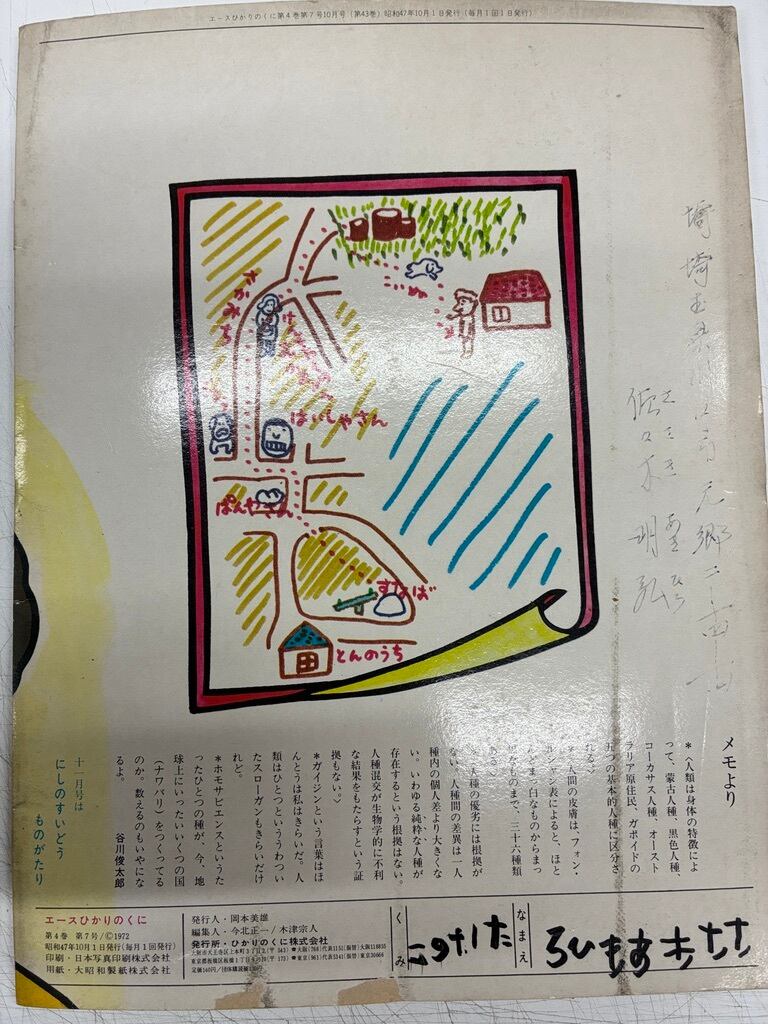 エースひかりのくに第4巻第7号10月号（第43巻）昭和47年10月1日発行（毎月1回1日発行）
こいぬ
はいしゃさん
ぱんやさん
すなば
とんのうち
埼玉県川口市元郷二
佐々木
ささき
あきひろ
メモより
＊〈人類は身体の特徴によ
って、蒙古人種、黒色人種、
コーカサス人種、オースト
ラリア原住民、ガポイドの
五つの基本的人種に区分さ
れる〉
人間の皮膚は、フォン・
ルシャン表によると、ほと
白なものからまっ
なものまで、三十六種類
ある〉
人種の優劣には根拠が
ない。人種間の差異は一人
種内の個人差より大きくな
い。いわゆる純粋な人種が
存在するという根拠はない。
人種混交が生物学的に不利
な結果をもたらすという証
拠もない。〉
＊ガイジンという言葉はほ
んとうは私はきらいだ。人
類はひとつというわつい
たスローガンもきらいだけ
れど。
＊ホモサピエンスというた
ったひとつの種が、今、地
球上にいったいいくつの国
（ナワバリ）をつくってる
のか。数えるのもいやにな
るよ。　谷川俊太郎
十一月号は
にしのすいどう
ものがたり
エースひかりのくに
第4巻 第7号/©1972
昭和47年10月1日発行（毎月1回発行）
印刷・日本写真印刷株式会社
用紙・大昭和製紙株式会社
発行人・岡本美雄
編集人・今北正一/木津宗人
発行所・ひかりのくに株式会社
定価140円
くみ
なまえ
ささきあきひろ